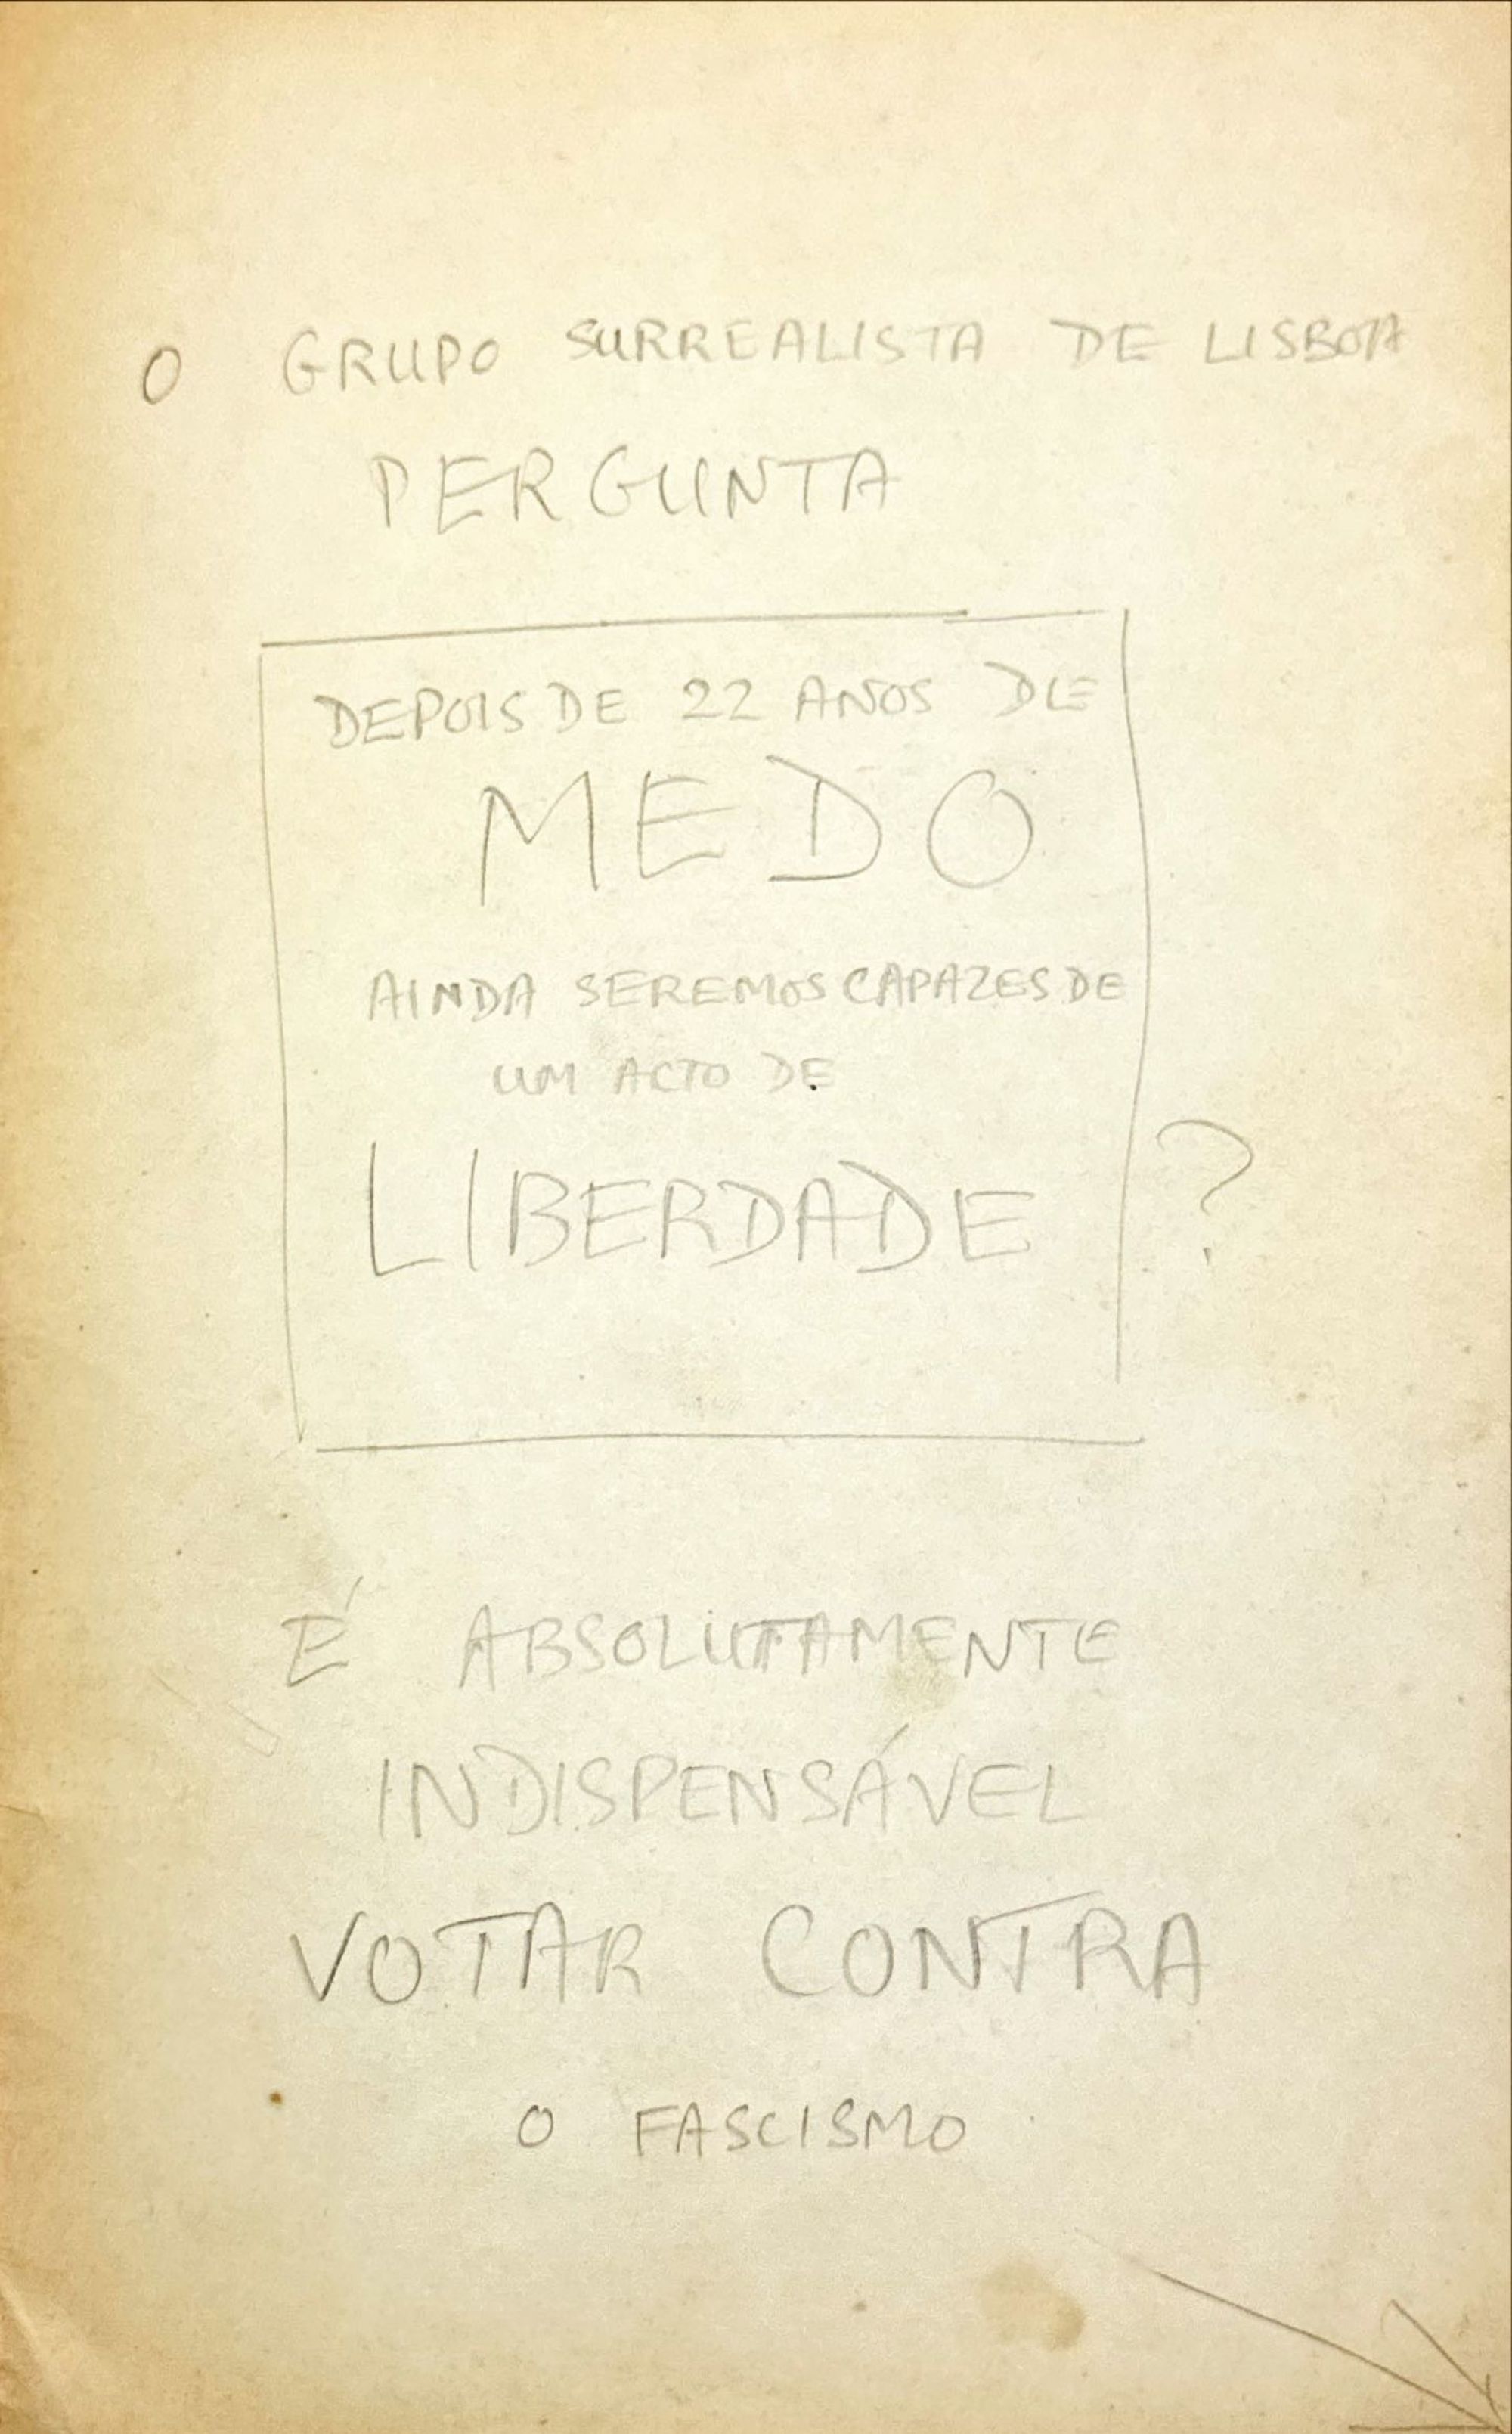 O GRUPO SURREALISTA DE LISBOA
PERGUNTA
DEPOIS DE 22 ANOS DE
MEDO
AINDA SEREMOS CAPAZES DE
UM ACTO DE
LIBERDADE ?
É ABSOLUTAMENTE
INDISPENSÁVEL
VOTAR CONTRA
O FASCISMO